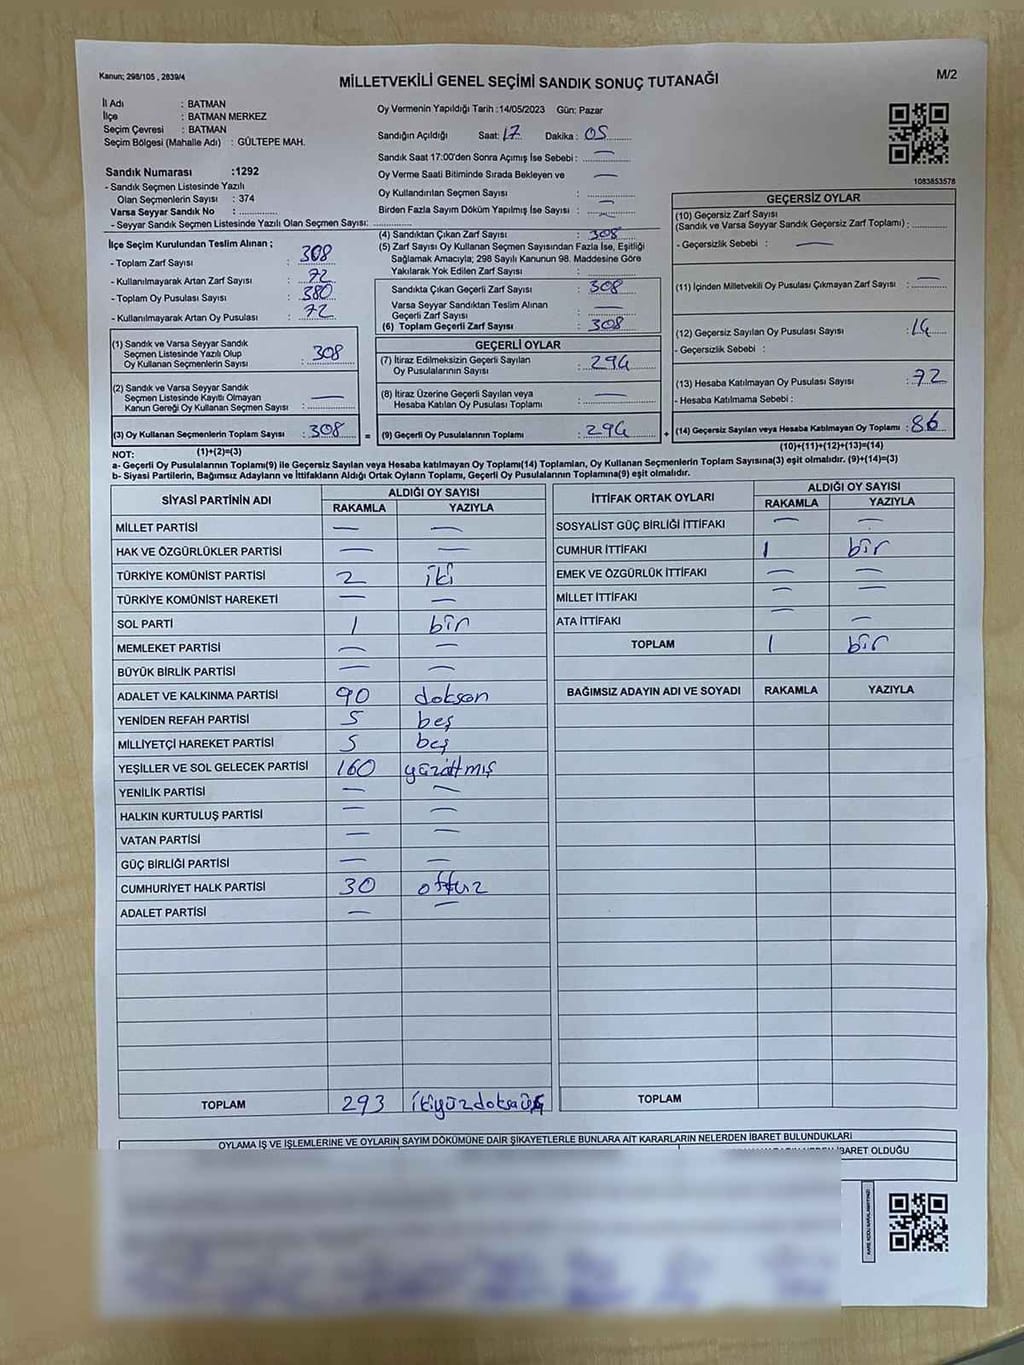 Kanun; 298/105 , 2839/4
MİLLETVEKİLİ GENEL SEÇİMİ SANDIK SONUÇ TUTANAĞI
M/2
İl Adı : BATMAN
İlçe : BATMAN MERKEZ
Seçim Çevresi : BATMAN
Seçim Bölgesi (Mahalle Adı) : GÜLTEPE MAH.
Sandık Numarası :1292
- Sandık Seçmen Listesinde Yazılı
Olan Seçmenlerin Sayısı : 374
Varsa Seyyar Sandık No :
- Seyyar Sandık Seçmen Listesinde Yazılı Olan Seçmen Sayısı:
Oy Vermenin Yapıldığı Tarih :14/05/2023 Gün: Pazar
Sandığın Açıldığı Saat: 17 Dakika : 05
Sandık Saat 17:00'den Sonra Açımış İse Sebebi : —
Oy Verme Saati Bitiminde Sırada Bekleyen ve
Oy Kullandırılan Seçmen Sayısı : —
Birden Fazla Sayım Döküm Yapılmış İse Sayısı : —
1083853578
İlçe Seçim Kurulundan Teslim Alınan ;
- Toplam Zarf Sayısı : 308
- Kullanılmayarak Artan Zarf Sayısı : 72
- Toplam Oy Pusulası Sayısı : 380
- Kullanılmayarak Artan Oy Pusulası : 72
(1) Sandık ve Varsa Seyyar Sandık
Seçmen Listesinde Yazılı Olup
Oy Kullanan Seçmenlerin Sayısı : 308
(2) Sandık ve Varsa Seyyar Sandık
Seçmen Listesinde Kayıtlı Olmayan
Kanun Gereği Oy Kullanan Seçmen Sayısı : —
(3) Oy Kullanan Seçmenlerin Toplam Sayısı : 308
(1)+(2)=(3)
(4) Sandıktan Çıkan Zarf Sayısı : 308
(5) Zarf Sayısı Oy Kullanan Seçmen Sayısından Fazla İse, Eşitliği
Sağlamak Amacıyla; 298 Sayılı Kanunun 98. Maddesine Göre
Yakılarak Yok Edilen Zarf Sayısı :
Sandıkta Çıkan Geçerli Zarf Sayısı : 308
Varsa Seyyar Sandıktan Teslim Alınan
Geçerli Zarf Sayısı : —
(6) Toplam Geçerli Zarf Sayısı : 308
GEÇERLİ OYLAR
(7) İtiraz Edilmeksizin Geçerli Sayılan
Oy Pusulalarının Sayısı : 294
(8) İtiraz Üzerine Geçerli Sayılan veya
Hesaba Katılan Oy Pusulası Toplamı : —
= (9) Geçerli Oy Pusulalarının Toplamı : 294 +
GEÇERSİZ OYLAR
(10) Geçersiz Zarf Sayısı
(Sandık ve Varsa Seyyar Sandık Geçersiz Zarf Toplamı) :
- Geçersizlik Sebebi : —
(11) İçinden Milletvekili Oy Pusulası Çıkmayan Zarf Sayısı : —
(12) Geçersiz Sayılan Oy Pusulası Sayısı : 14
- Geçersizlik Sebebi :
(13) Hesaba Katılmayan Oy Pusulası Sayısı : 72
- Hesaba Katılmama Sebebi :
(14) Geçersiz Sayılan veya Hesaba Katılmayan Oy Toplamı : 86
(10)+(11)+(12)+(13)=(14)
NOT:
a- Geçerli Oy Pusulalarının Toplamı(9) ile Geçersiz Sayılan veya Hesaba katılmayan Oy Toplamı(14) Toplamları, Oy Kullanan Seçmenlerin Toplam Sayısına(3) eşit olmalıdır. (9)+(14)=(3)
b- Siyasi Partilerin, Bağımsız Adayların ve İttifakların Aldığı Ortak Oyların Toplamı, Geçerli Oy Pusulalarının Toplamına(9) eşit olmalıdır.
SİYASİ PARTİNİN ADI ALDIĞI OY SAYISI
RAKAMLA YAZIYLA
MİLLET PARTİSİ — —
HAK VE ÖZGÜRLÜKLER PARTİSİ — —
TÜRKİYE KOMÜNİST PARTİSİ 2 iki
TÜRKİYE KOMÜNİST HAREKETİ — —
SOL PARTİ 1 bir
MEMLEKET PARTİSİ — —
BÜYÜK BİRLİK PARTİSİ — —
ADALET VE KALKINMA PARTİSİ 90 doksan
YENİDEN REFAH PARTİSİ 5 beş
MİLLİYETÇİ HAREKET PARTİSİ 5 beş
YEŞİLLER VE SOL GELECEK PARTİSİ 160 yüzaltmış
YENİLİK PARTİSİ — —
HALKIN KURTULUŞ PARTİSİ — —
VATAN PARTİSİ — —
GÜÇ BİRLİĞİ PARTİSİ — —
CUMHURİYET HALK PARTİSİ 30 ottuz
ADALET PARTİSİ — —
TOPLAM 293
İTTİFAK ORTAK OYLARI ALDIĞI OY SAYISI
RAKAMLA YAZIYLA
SOSYALİST GÜÇ BİRLİĞİ İTTİFAKI — —
CUMHUR İTTİFAKI 1 bir
EMEK VE ÖZGÜRLÜK İTTİFAKI — —
MİLLET İTTİFAKI — —
ATA İTTİFAKI — —
TOPLAM 1 bir
BAĞIMSIZ ADAYIN ADI VE SOYADI RAKAMLA YAZIYLA
TOPLAM
OYLAMA İŞ VE İŞLEMLERİNE VE OYLARIN SAYIM DÖKÜMÜNE DAİR ŞİKAYETLERLE BUNLARA AİT KARARLARIN NELERDEN İBARET BULUNDUKLARI
OLDUĞU